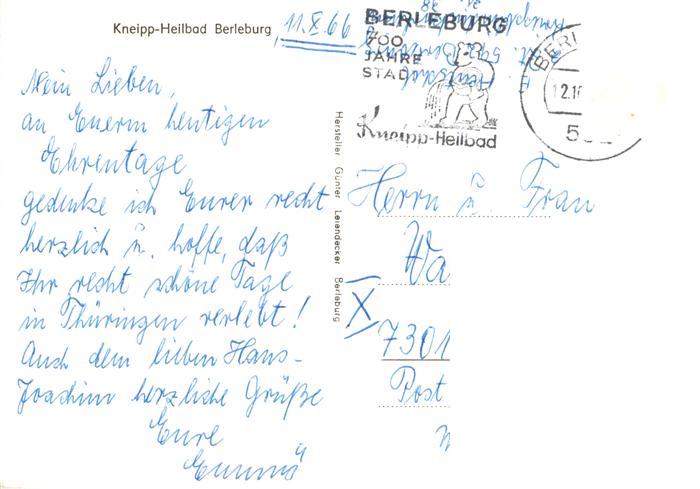 Kneipp-Heilbad Berleburg
11.X.66
BERLEBURG
700
JAHRE
STADT
Kneipp-Heilbad
BERL
12.10
Mein Lieben,
an Euerm heutigen
Ehrentage
gedenke ich Eurer recht
herzlich u. hoffe, daß
Ihr recht schöne Tage
in Thüringen verlebt!
Auch dem lieben Hans-
Joachim herzliche Grüße
Eure
Hersteller Günter Leiendecker Berleburg
Herrn u. Frau
Wa
X
7301
Post